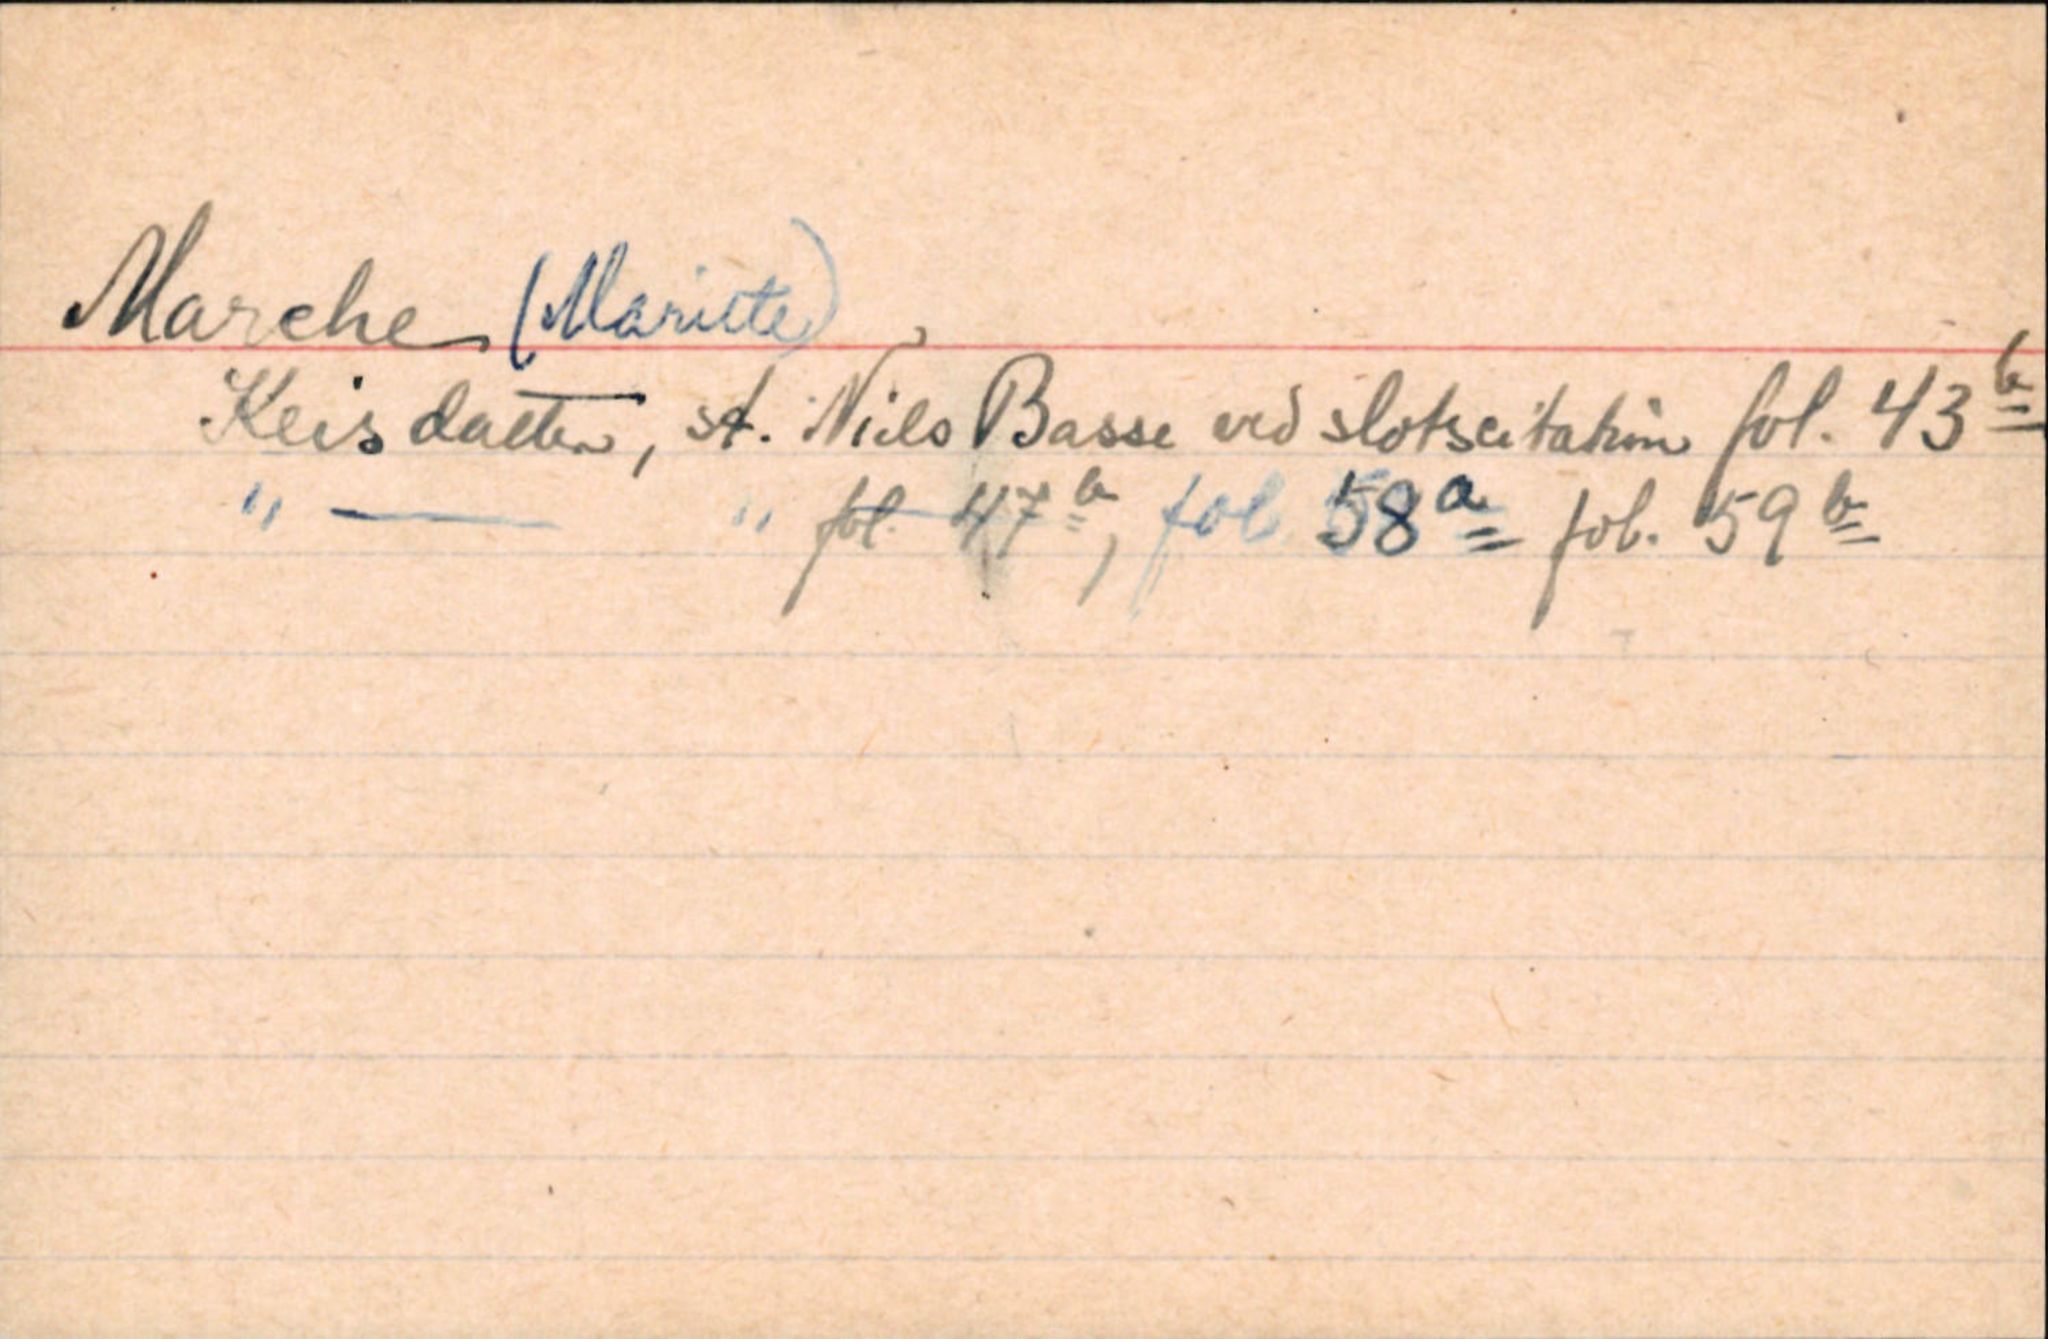 Marche (Maritte)
Keisdatter, st. Niels Basse ved slotscitation fol. 43b
" — " fol. 47b, fol. 58a fol. 59b